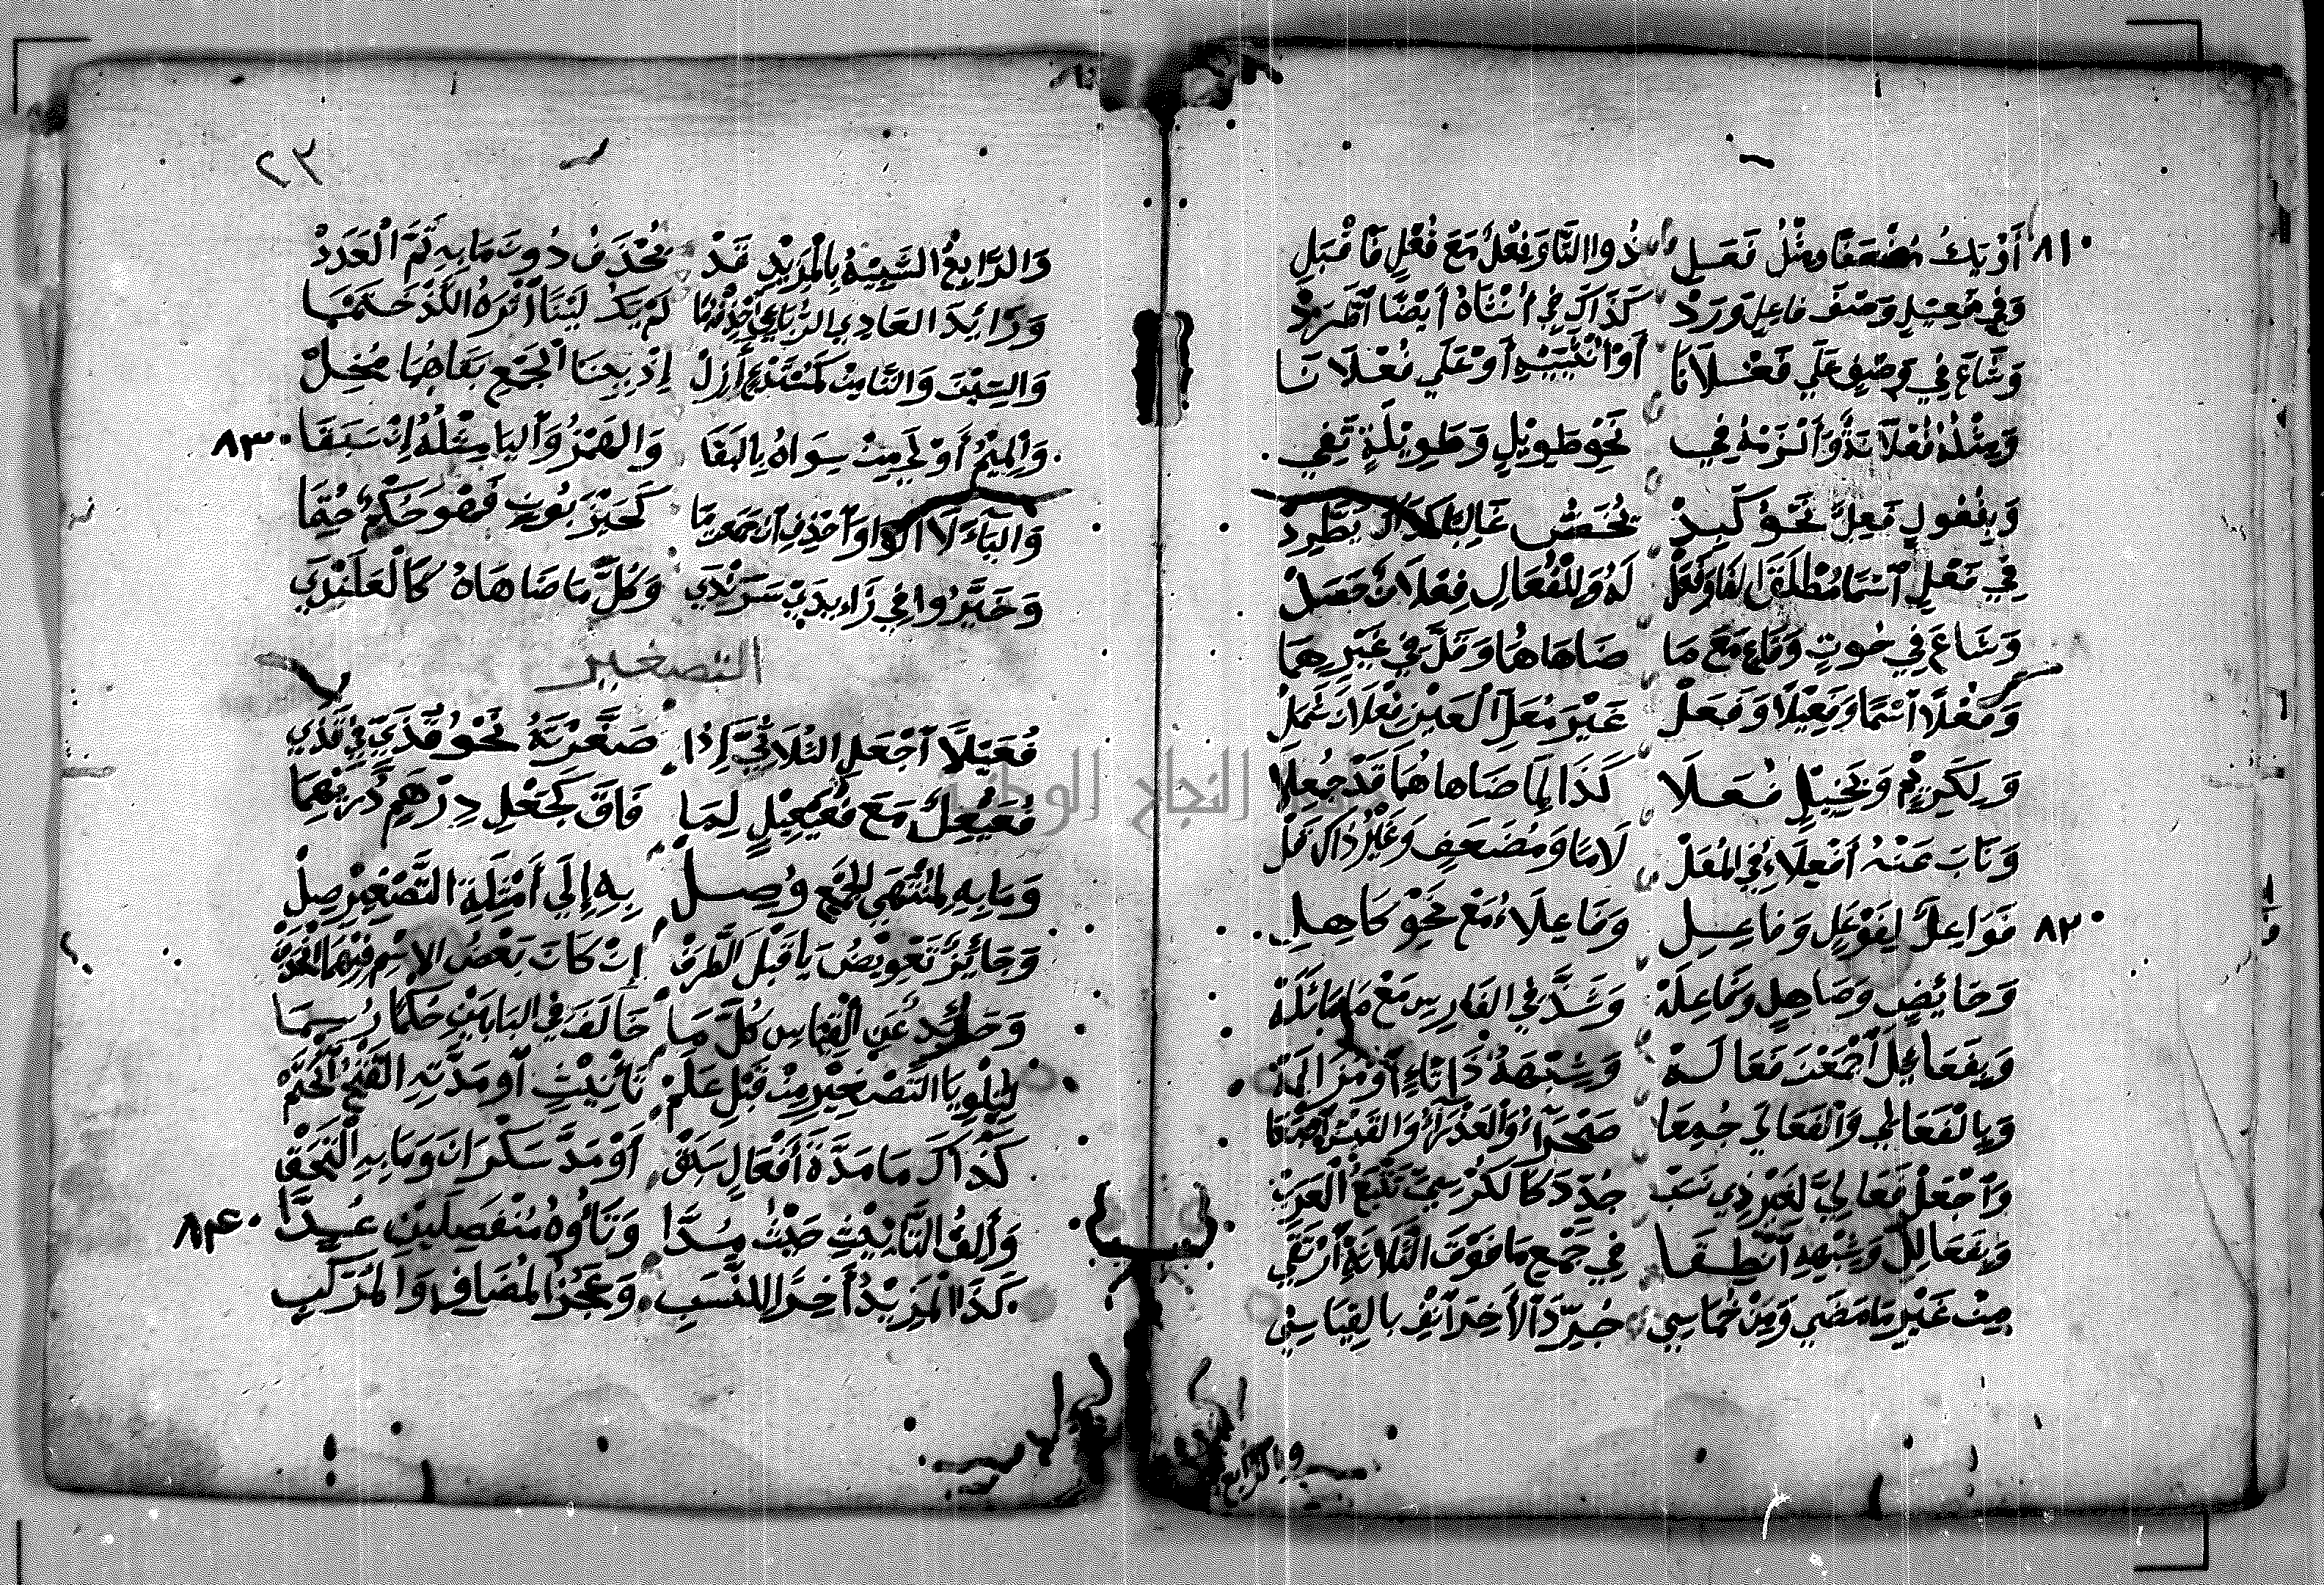 ٨١٠ أَوْ يَكُ مُضْعَفًا وَمِثْلُ فَعَلِ ذُو التَّا وَفِعْلٌ مَعَ فُعْلٍ فَاقْبَلِ
وَفِي فَعِيلٍ وَصْفَ فَاعِلٍ وَرَدْ كَذَاكَ فِي أُنْثَاهُ أَيْضًا اطَّرَدْ
وَشَاعَ فِي وَصْفٍ عَلَى فَعْلَانَا أَوْ أُنْثَيَيْهِ أَوْ عَلَى فُعْلَانَا
وَمِثْلُهُ فُعْلَانَةٌ وَالْزَمْهُ فِي نَحْوِ طَوِيلٍ وَطَوِيلَةٍ تَفِي
وَبِفُعُولٍ فَعِلٌ نَحْوُ كَبِدْ يُخَصُّ غَالِبًا كَذَاكَ يَطَّرِدْ
فِي فَعْلٍ اسْمًا مُطْلَقَ الْفَا وَفَعَلْ لَهُ وَلِلْفُعَالِ فِعْلَانٌ حَصَلْ
وَشَاعَ فِي حُوتٍ وَقَاعٍ مَعَ مَا ضَاهَاهُمَا وَقَلَّ فِي غَيْرِهِمَا
وَفَعْلًا اسْمًا وَفَعِيلًا وَفَعَلْ غَيْرَ مُعَلِّ الْعَيْنِ فُعْلَانٌ شَمَلْ
وَلِكَرِيمٍ وَبَخِيلٍ فُعَلَا كَذَا لِمَا ضَاهَاهُمَا قَدْ جُعِلَا
وَنَابَ عَنْهُ أَفْعِلَاءُ فِي الْمُعَلْ لَامًا وَمُضْعَفٍ وَغَيْرُ ذَاكَ قَلْ
٨٢٠ فَوَاعِلٌ لِفَوْعَلٍ وَفَاعِلِ وَفَاعِلَاءَ مَعَ نَحْوِ كَاهِلِ
وَحَائِضٍ وَصَاهِلٍ وَفَاعِلَهْ وَشَذَّ فِي الْفَارِسِ مَعْ مَا مَاثَلَهْ
وَبِفَعَائِلَ اجْمَعَنْ فَعَالَهْ وَشِبْهَهُ ذَا تَاءٍ أَوْ مُزَالَهْ
وَبِالْفَعَالِي وَالْفَعَالَى جُمِعَا صَحْرَاءُ وَالْعَذْرَاءُ وَالْقَيْسَ اتْبَعَا
وَاجْعَلْ فَعَالِيَّ لِغَيْرِ ذِي نَسَبْ جُدِّدَ كَالْكُرْسِيِّ تَتْبَعِ الْعَرَبْ
وَبِفَعَالِلَ وَشِبْهِهِ انْطِقَا فِي جَمْعِ مَا فَوْقَ الثَّلَاثَةِ ارْتَقَى
مِنْ غَيْرِ مَا مَضَى وَمِنْ خُمَاسِي جُرِّدَ الْآخِرَ انْفِ بِالْقِيَاسِ
والرابع
٢٣
وَالرَّابِعُ الشَّبِيهُ بِالْمَزِيدِ قَدْ يُحْذَفُ دُونَ مَا بِهِ تَمَّ الْعَدَدْ
وَزَائِدَ الْعَادِي الرُّبَاعِي احْذِفْهُ مَا لَمْ يَكُ لَيْنًا أَثْرَهُ اللَّذْ خَتَمَا
وَالسِّينَ وَالتَّا مِنْ كَمُسْتَدْعٍ أَزِلْ إِذْ بِبِنَا الْجَمْعِ بَقَاهُمَا مُخِلْ
٨٣٠ وَالْمِيمُ أَوْلَى مِنْ سِوَاهُ بِالْبَقَا وَالْهَمْزُ وَالْيَا مِثْلُهُ إِنْ سَبَقَا
وَالْيَاءَ لَا الْوَاوَ احْذِفِ انْ جَمَعْتَ مَا كَحَيْزَبُونٍ فَهْوَ حُكْمٌ حُتِمَا
وَخَيَّرُوا فِي زَائِدَيْ سَرَنْدَى وَكُلِّ مَا ضَاهَاهُ كَالْعَلَنْدَى
التصغير
فُعَيْلًا اجْعَلِ الثُّلَاثِيَّ إِذَا صَغَّرْتَهُ نَحْوُ قُذَيٍّ فِي قَذَى
فُعَيْعِلٌ مَعَ فُعَيْعِيلٍ لِمَا فَاقَ كَجَعْلِ دِرْهَمٍ دُرَيْهِمَا
وَمَا بِهِ لِمُنْتَهَى الْجَمْعِ وُصِلْ بِهِ إِلَى أَمْثِلَةِ التَّصْغِيرِ صِلْ
وَجَائِزٌ تَعْوِيضُ يَا قَبْلَ الطَّرَفْ إِنْ كَانَ بَعْضُ الْاسْمِ فِيهِمَا انْحَذَفْ
وَحَائِدٌ عَنِ الْقِيَاسِ كُلُّ مَا خَالَفَ فِي الْبَابَيْنِ حُكْمًا رُسِمَا
لِتِلْوِ يَا التَّصْغِيرِ مِنْ قَبْلِ عَلَمْ تَأْنِيثٍ أَوْ مَدَّتِهِ الْفَتْحُ انْحَتَمْ
كَذَاكَ مَا مَدَّةَ أَفْعَالٍ سَبَقْ أَوْ مَدَّ سَكْرَانَ وَمَا بِهِ الْتَحَقْ
٨٤٠ وَأَلِفُ التَّأْنِيثِ حَيْثُ مُدَّا وَتَاؤُهُ مُنْفَصِلَيْنِ عُدَّا
كَذَا الْمَزِيدُ آخِرًا لِلنَّسَبِ وَعَجُزُ الْمُضَافِ وَالْمُرَكَّبِ